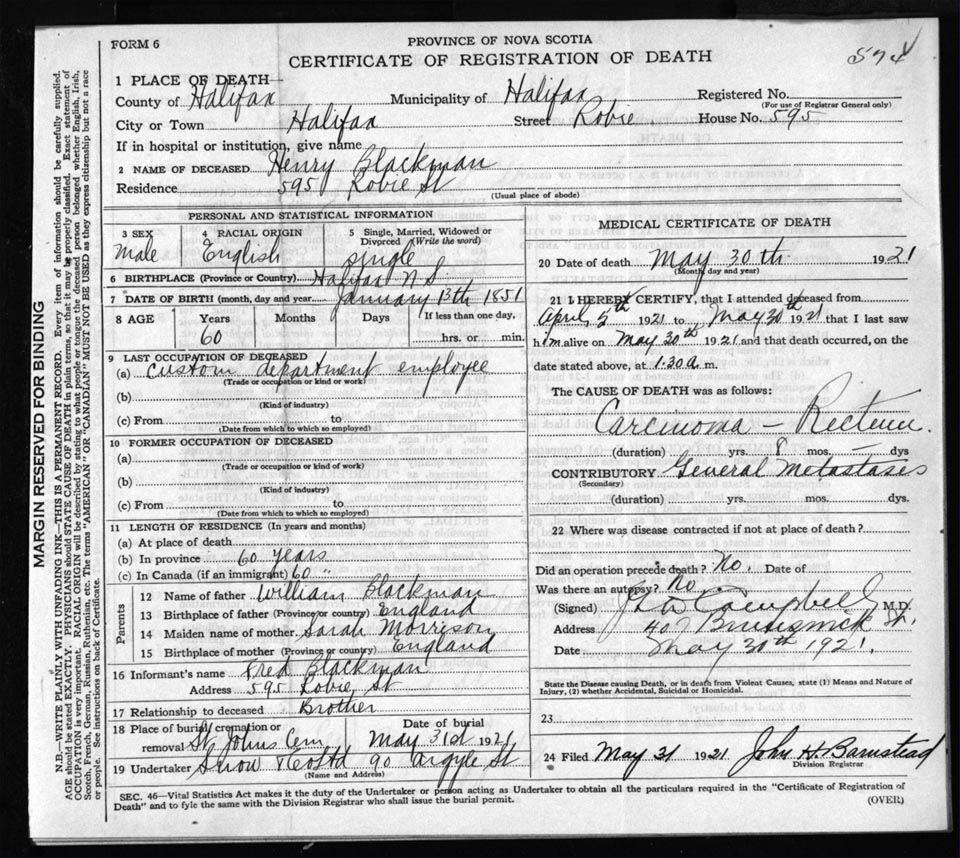 FORM 6
PROVINCE OF NOVA SCOTIA
CERTIFICATE OF REGISTRATION OF DEATH
574
1 PLACE OF DEATH—
County of Halifax Municipality of Halifax Registered No.
(For use of Registrar General only)
City or Town Halifax Street Robie House No. 595
If in hospital or institution, give name
2 NAME OF DECEASED Henry Blackman
Residence 595 Robie St
(Usual place of abode)
PERSONAL AND STATISTICAL INFORMATION
3 SEX 4 RACIAL ORIGIN 5 Single, Married, Widowed or
Divorced (Write the word)
Male English single
6 BIRTHPLACE (Province or Country) Halifax N S
7 DATE OF BIRTH (month, day and year) January 13th 1851
8 AGE Years Months Days If less than one day,
60 hrs. or min.
9 LAST OCCUPATION OF DECEASED
(a) custom department employee
(Trade or occupation or kind or work)
(b)
(Kind of industry)
(c) From to
(Date from which to which so employed)
10 FORMER OCCUPATION OF DECEASED
(a)
(Trade or occupation or kind of work)
(b)
(Kind of industry)
(c) From to
(Date from which to which so employed)
11 LENGTH OF RESIDENCE (In years and months)
(a) At place of death
(b) In province 60 years
(c) In Canada (if an immigrant) 60 "
Parents
12 Name of father William Blackman
13 Birthplace of father (Province or country) England
14 Maiden name of mother Sarah Morrison
15 Birthplace of mother (Province or country) England
16 Informant's name Fred Blackman
Address 595 Robie St
17 Relationship to deceased Brother
18 Place of burial, cremation or Date of burial
removal St Johns Cem May 31st 1921
19 Undertaker Snow & Co Ltd 90 Argyle St
(Name and Address)
MEDICAL CERTIFICATE OF DEATH
20 Date of death May 30th 1921
(Month, day and year)
21 I HEREBY CERTIFY, that I attended deceased from
April 5th 1921 to May 30th 1921 that I last saw
him alive on May 30th 1921 and that death occurred, on the
date stated above, at 1.30 a. m.
The CAUSE OF DEATH was as follows:
Carcinoma — Rectum.
(duration) yrs. 8 mos. — dys
CONTRIBUTORY General metastases
(Secondary)
(duration) yrs. mos. dys.
22 Where was disease contracted if not at place of death?
Did an operation precede death? No. Date of
Was there an autopsy? No
(Signed) Campbell M.D.
Address 407 Brunswick St.
Date May 30th 1921.
State the Disease causing Death, or in death from Violent Causes, state (1) Means and Nature of
Injury, (2) whether Accidental, Suicidal or Homicidal.
23
24 Filed May 31 1921 John H. Barnstead
Division Registrar
SEC. 46—Vital Statistics Act makes it the duty of the Undertaker or person acting as Undertaker to obtain all the particulars required in the "Certificate of Registration of
Death" and to fyle the same with the Division Registrar who shall issue the burial permit.
(OVER)
MARGIN RESERVED FOR BINDING
N.B.—WRITE PLAINLY WITH UNFADING INK—THIS IS A PERMANENT RECORD. Every item of information should be carefully supplied.
AGE should be stated EXACTLY. PHYSICIANS should STATE CAUSE OF DEATH in plain terms, so that it may be properly classified. Exact statement of
OCCUPATION is very important. RACIAL ORIGIN will be described by stating to what people or tongue the deceased person belonged, whether English, Irish,
Scotch, French, German, Russian, Ruthenian, etc. The terms "AMERICAN" OR "CANADIAN" MUST NOT BE USED as they express citizenship but not a race
or people. See instructions on back of Certificate.